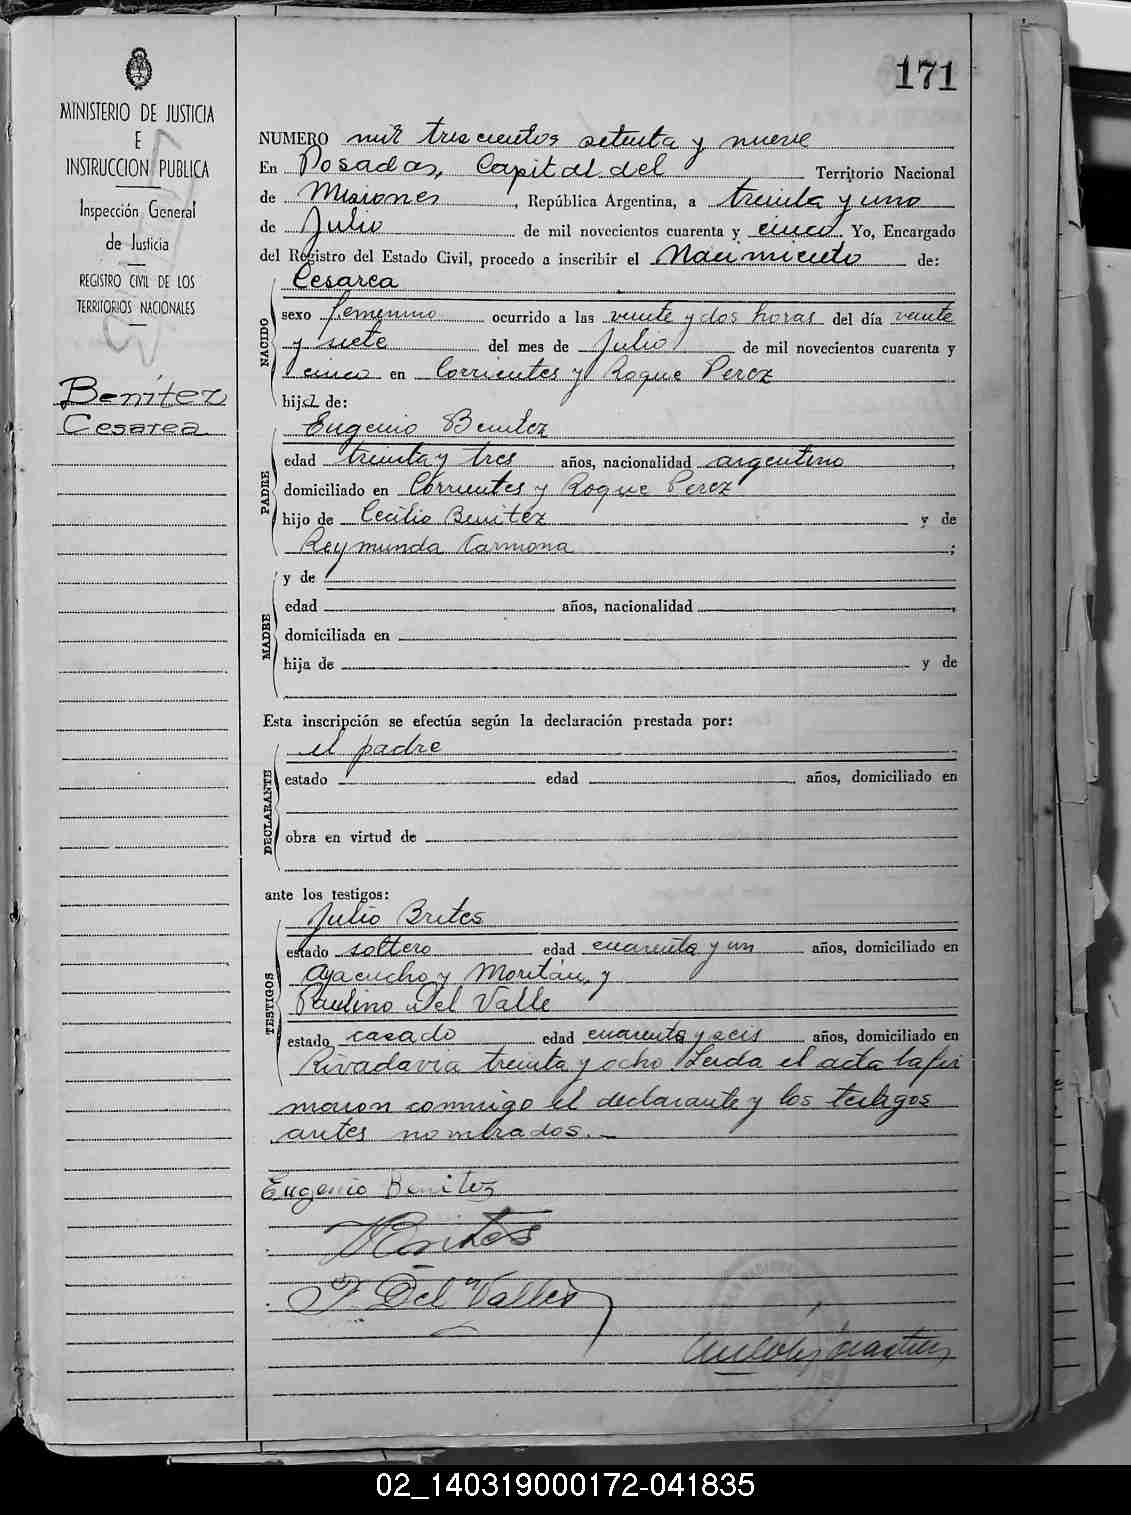 171
MINISTERIO DE JUSTICIA
E
INSTRUCCION PUBLICA
Inspección General
de Justicia
REGISTRO CIVIL DE LOS
TERRITORIOS NACIONALES
Benitez
Cesarea
NUMERO mil trescientos setenta y nueve
En Posadas, Capital del Territorio Nacional
de Misiones, República Argentina, a treinta y uno
de Julio de mil novecientos cuarenta y cinco. Yo, Encargado
del Registro del Estado Civil, procedo a inscribir el Nacimiento de:
NACIDO
Cesarea
sexo femenino ocurrido a las veinte y dos horas del día veinte
y siete del mes de Julio de mil novecientos cuarenta y
cinco en Corrientes y Roque Perez
hija de:
PADRE
Eugenio Benitez
edad treinta y tres años, nacionalidad argentino,
domiciliado en Corrientes y Roque Perez
hijo de Cecilio Benitez y de
Reymunda Carmona;
MADRE
y de
edad años, nacionalidad,
domiciliada en
hija de y de
Esta inscripción se efectúa según la declaración prestada por:
DECLARANTE
el padre
estado edad años, domiciliado en
obra en virtud de
ante los testigos:
TESTIGOS
Julio Brites
estado soltero edad cuarenta y un años, domiciliado en
Ayacucho y Moritán, y
Paulino del Valle
estado casado edad cuarenta y seis años, domiciliado en
Rivadavia treinta y ocho. Leida el acta la fir
maron conmigo el declarante y los testigos
antes nombrados.—
Eugenio Benitez
JBrites
P. Del Valle
02_140319000172-041835